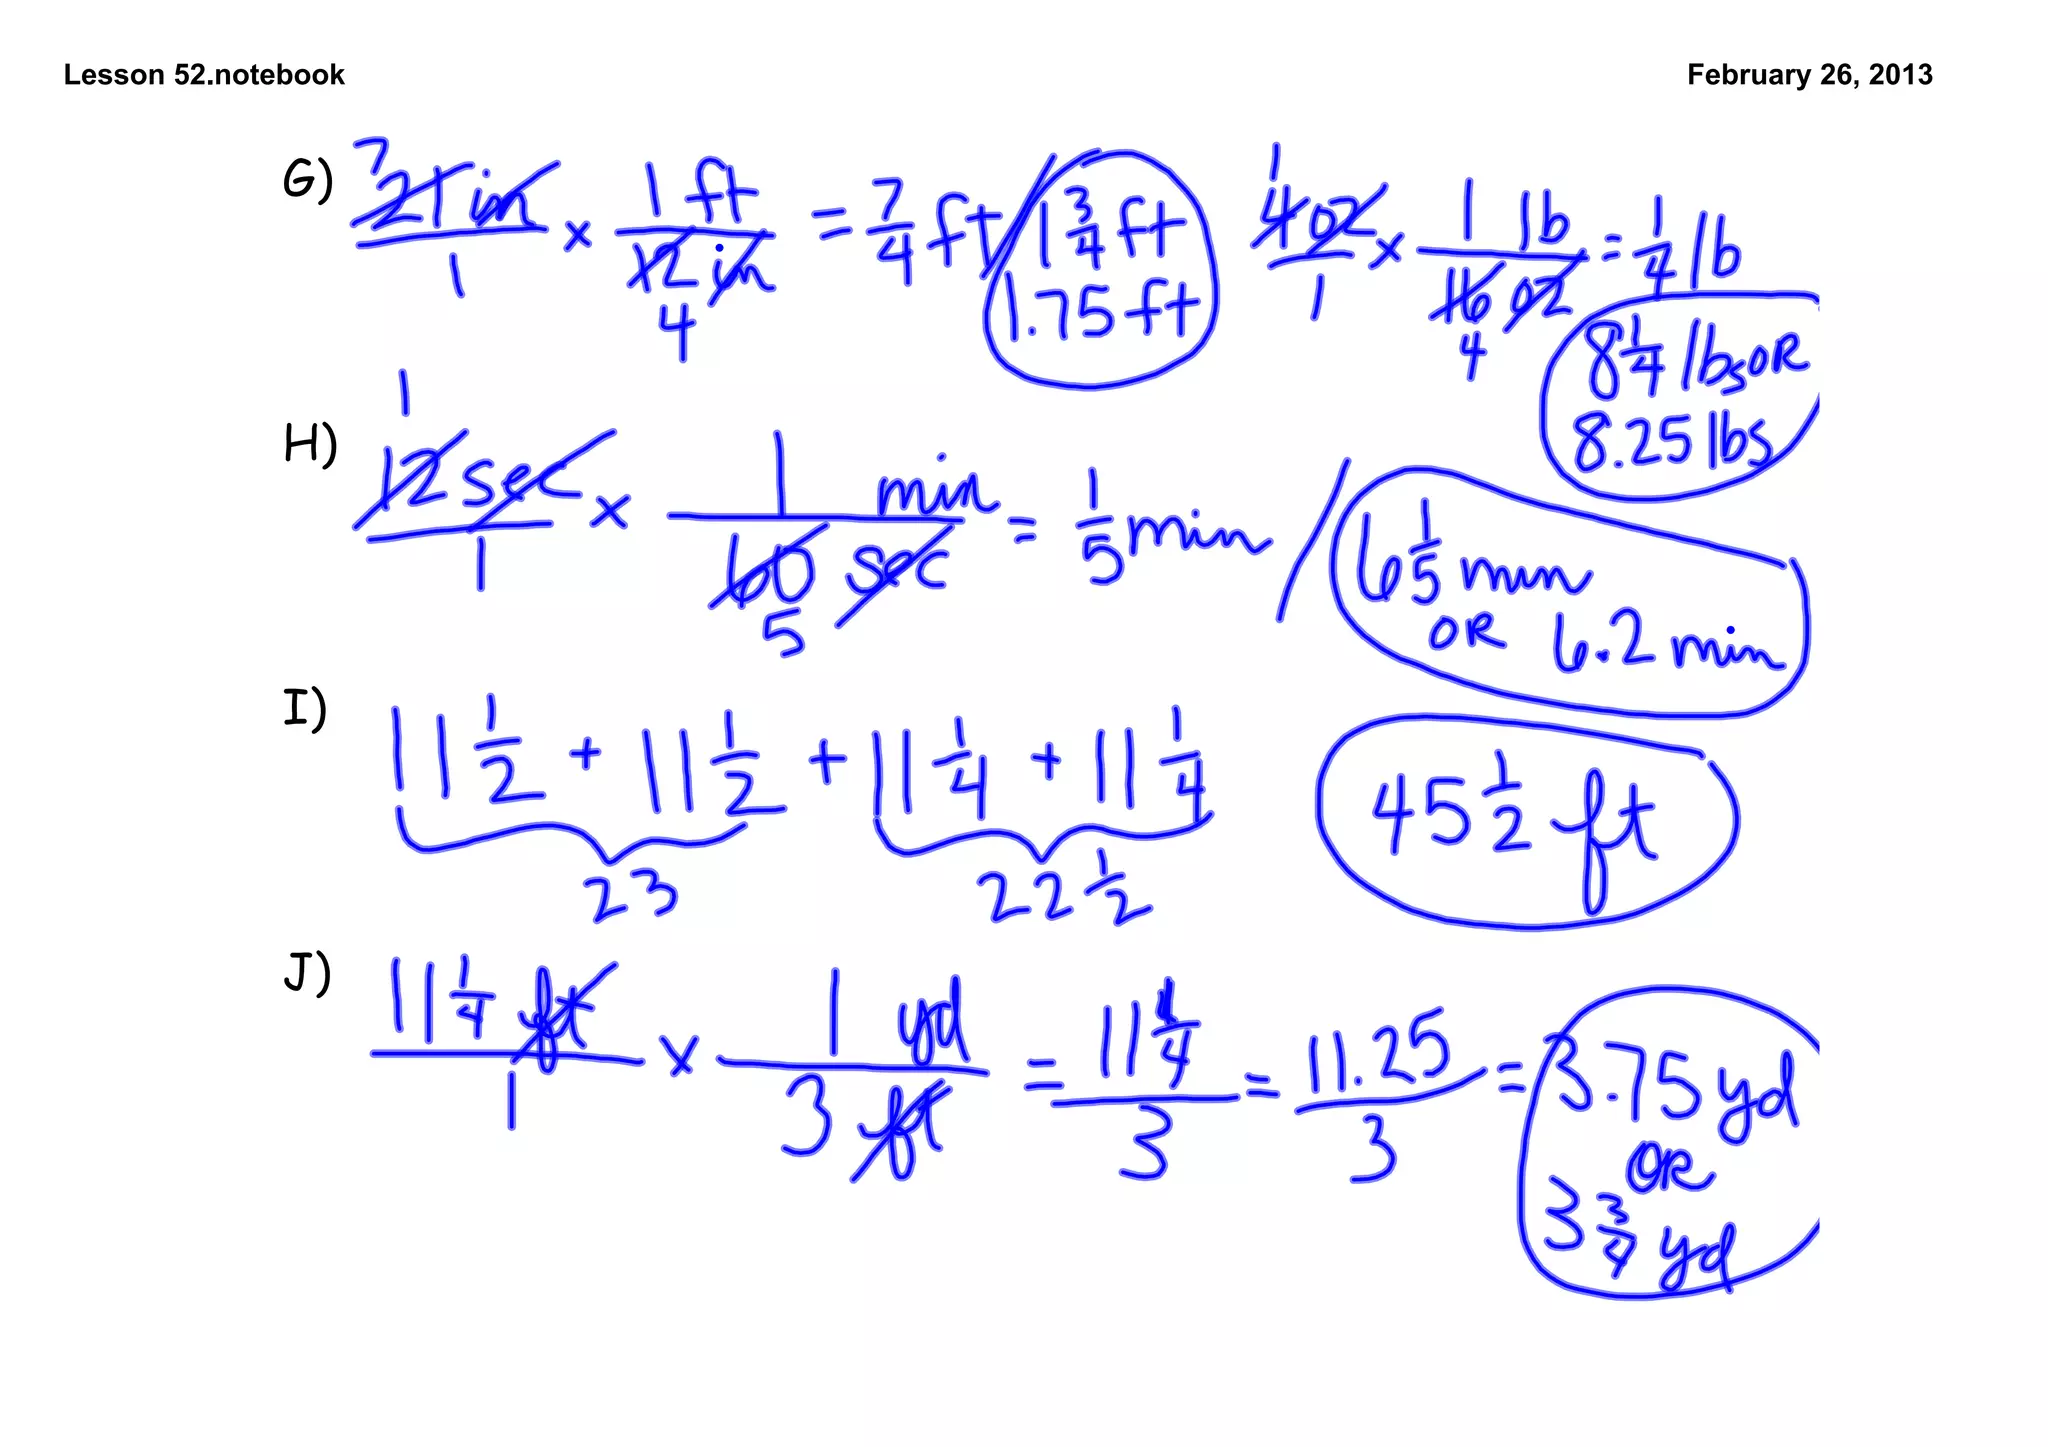 Lesson 52.notebook
February 26, 2013
G) 7 21 in / 1 × 1 ft / 12 in 4 = 7/4 ft / 1 3/4 ft
1.75 ft
1 4 oz / 1 × 1 lb / 16 oz 4 = 1/4 lb
8 1/4 lbs OR
8.25 lbs
H) 1 12 sec / 1 × 1 min / 60 sec 5 = 1/5 min / 6 1/5 min
OR 6.2 min
I) 11 1/2 + 11 1/2 + 11 1/4 + 11 1/4
23 22 1/2
45 1/2 ft
J) 11 1/4 ft / 1 × 1 yd / 3 ft = 11 1/4 / 3 = 11.25 / 3 = 3.75 yd
OR
3 3/4 yd